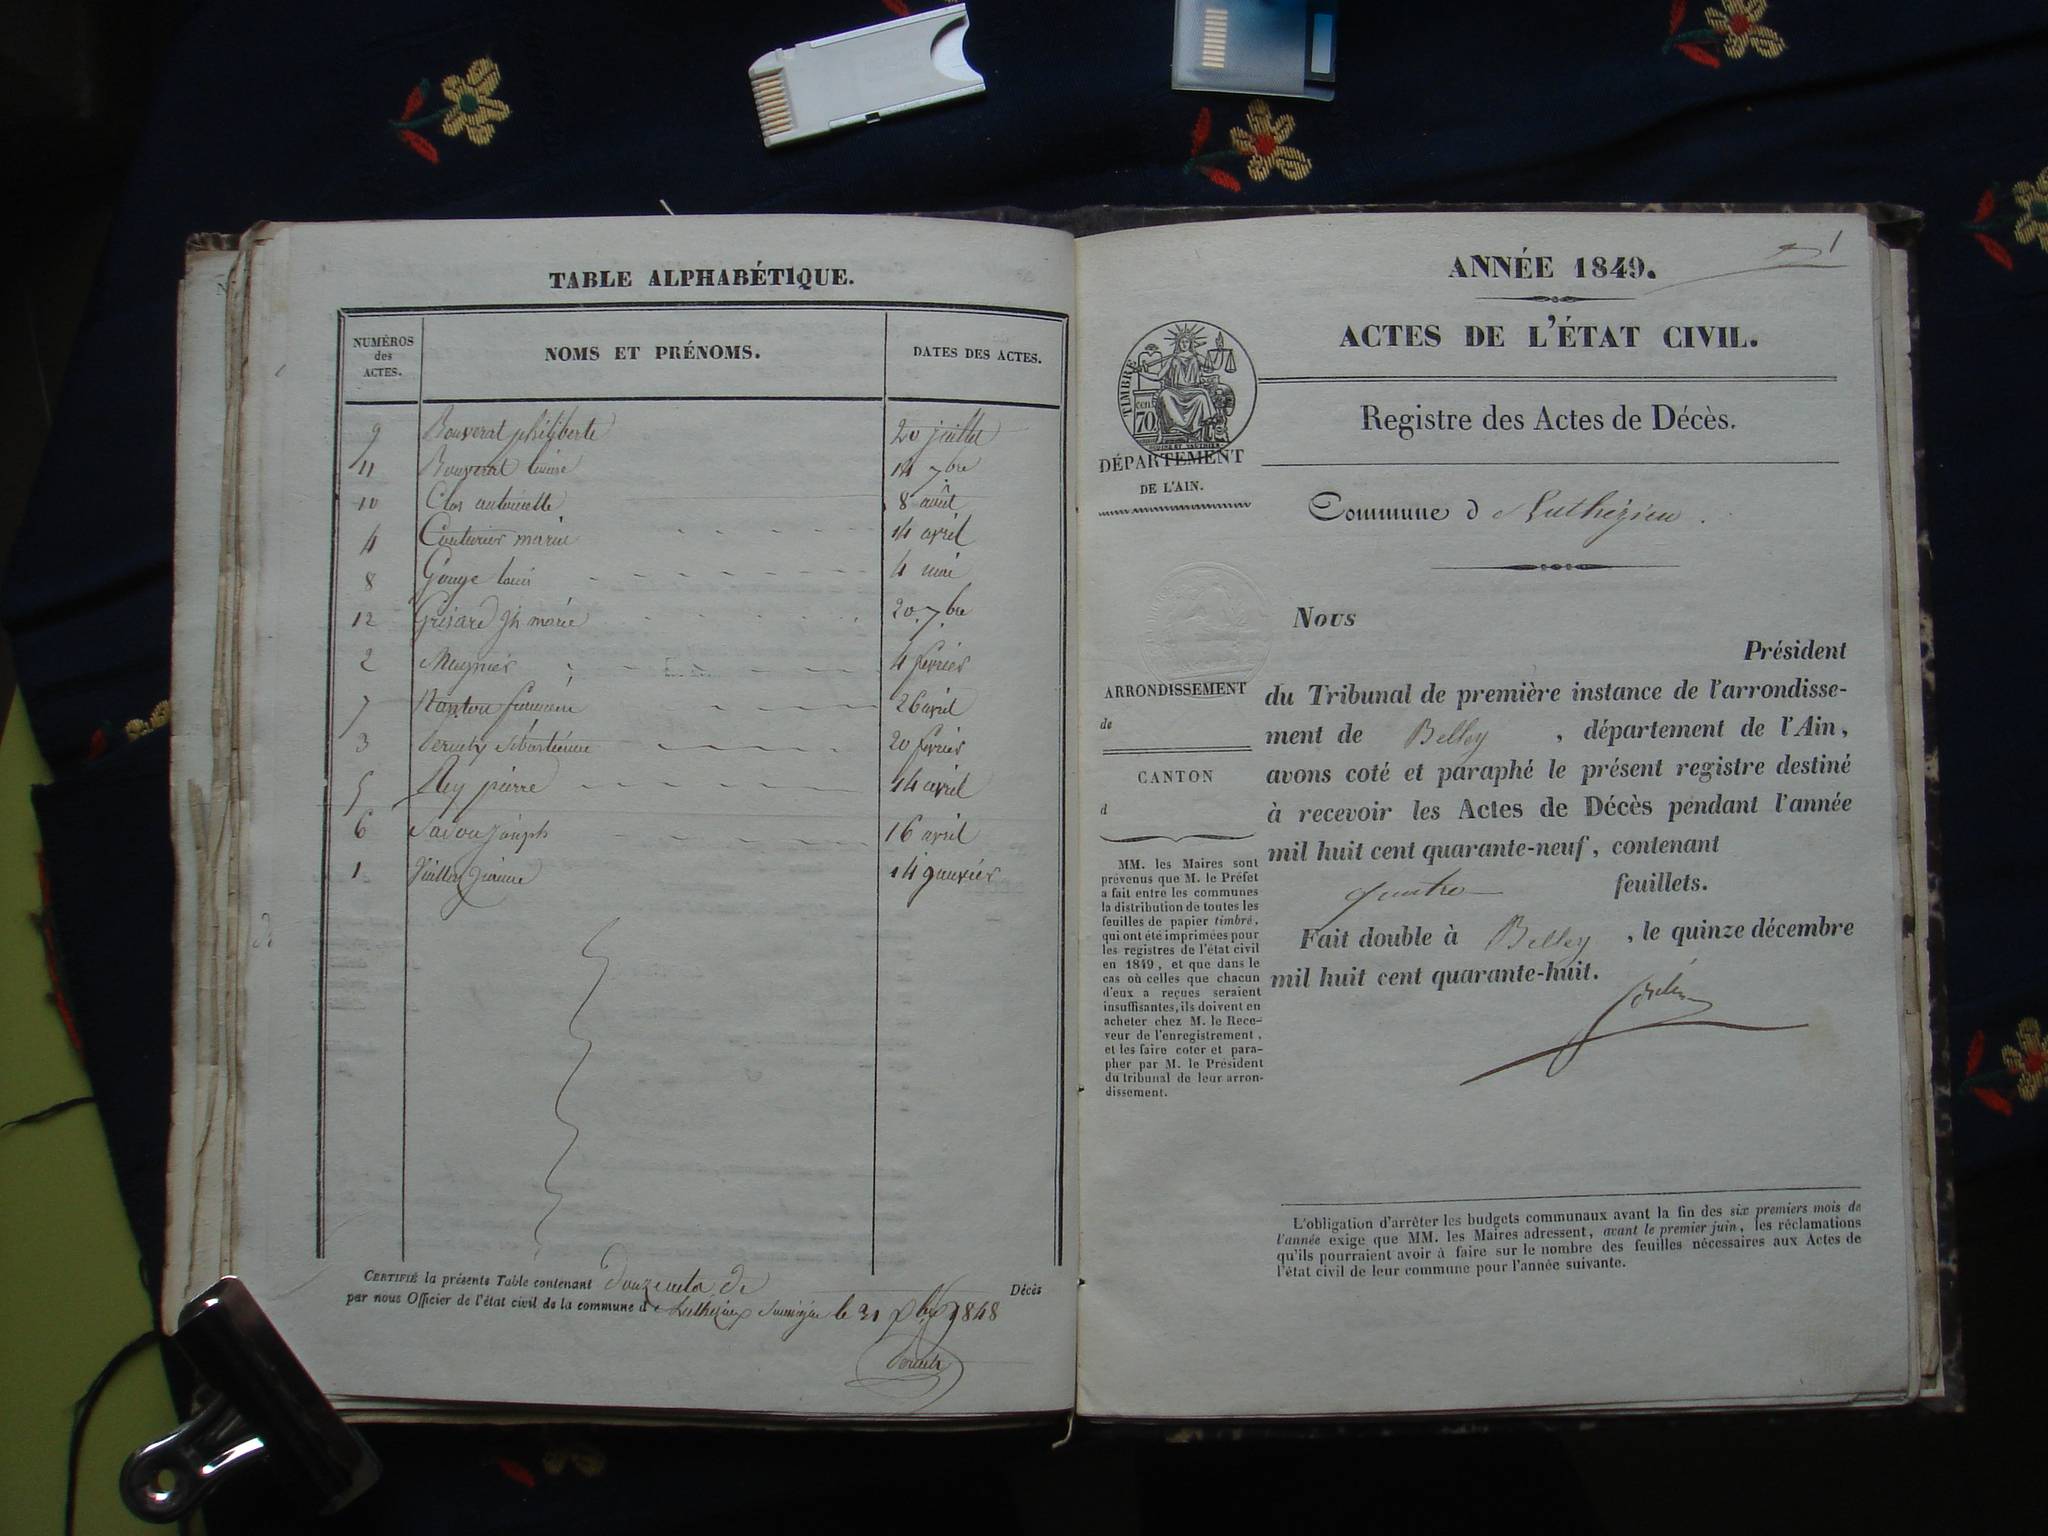 TABLE ALPHABÉTIQUE.
NUMÉROS
des
ACTES.
NOMS ET PRÉNOMS.
DATES DES ACTES.
9 Bouverat philiberte 20 juillet
11 Bouverat 14 7bre
10 Clos antoinette 8 août
4 Couturier marie 14 avril
8 Gouge louis 4 mai
12 Grisard Jh marie 20. 7.bre
2 Meynier 4 février
7 26 avril
3 20 février
5 Rey pierre 14 avril
6 Savou joseph 16 avril
1 14 janvier
CERTIFIÉ la présente Table contenant douze actes de Décès
par nous Officier de l'état civil de la commune d Luthézieu le 31 Xbre 1848
1
ANNÉE 1849.
ACTES DE L'ÉTAT CIVIL.
TIMBRE
cen
70
DÉPARTEMENT
DE L'AIN.
Registre des Actes de Décès.
Commune d Luthézieu.
ARRONDISSEMENT
de
CANTON
d
MM. les Maires sont
prévenus que M. le Préfet
a fait entre les communes
la distribution de toutes les
feuilles de papier timbré,
qui ont été imprimées pour
les registres de l'état civil
en 1849, et que dans le
cas où celles que chacun
d'eux a reçues seraient
insuffisantes, ils doivent en
acheter chez M. le Rece-
veur de l'enregistrement,
et les faire coter et para-
pher par M. le Président
du tribunal de leur arron-
dissement.
Nous
Président
du Tribunal de première instance de l'arrondisse-
ment de Belley, département de l'Ain,
avons coté et paraphé le présent registre destiné
à recevoir les Actes de Décès pendant l'année
mil huit cent quarante-neuf, contenant
quatre feuillets.
Fait double à Belley, le quinze décembre
mil huit cent quarante-huit.
L'obligation d'arrêter les budgets communaux avant la fin des six premiers mois de
l'année exige que MM. les Maires adressent, avant le premier juin, les réclamations
qu'ils pourraient avoir à faire sur le nombre des feuilles nécessaires aux Actes de
l'état civil de leur commune pour l'année suivante.